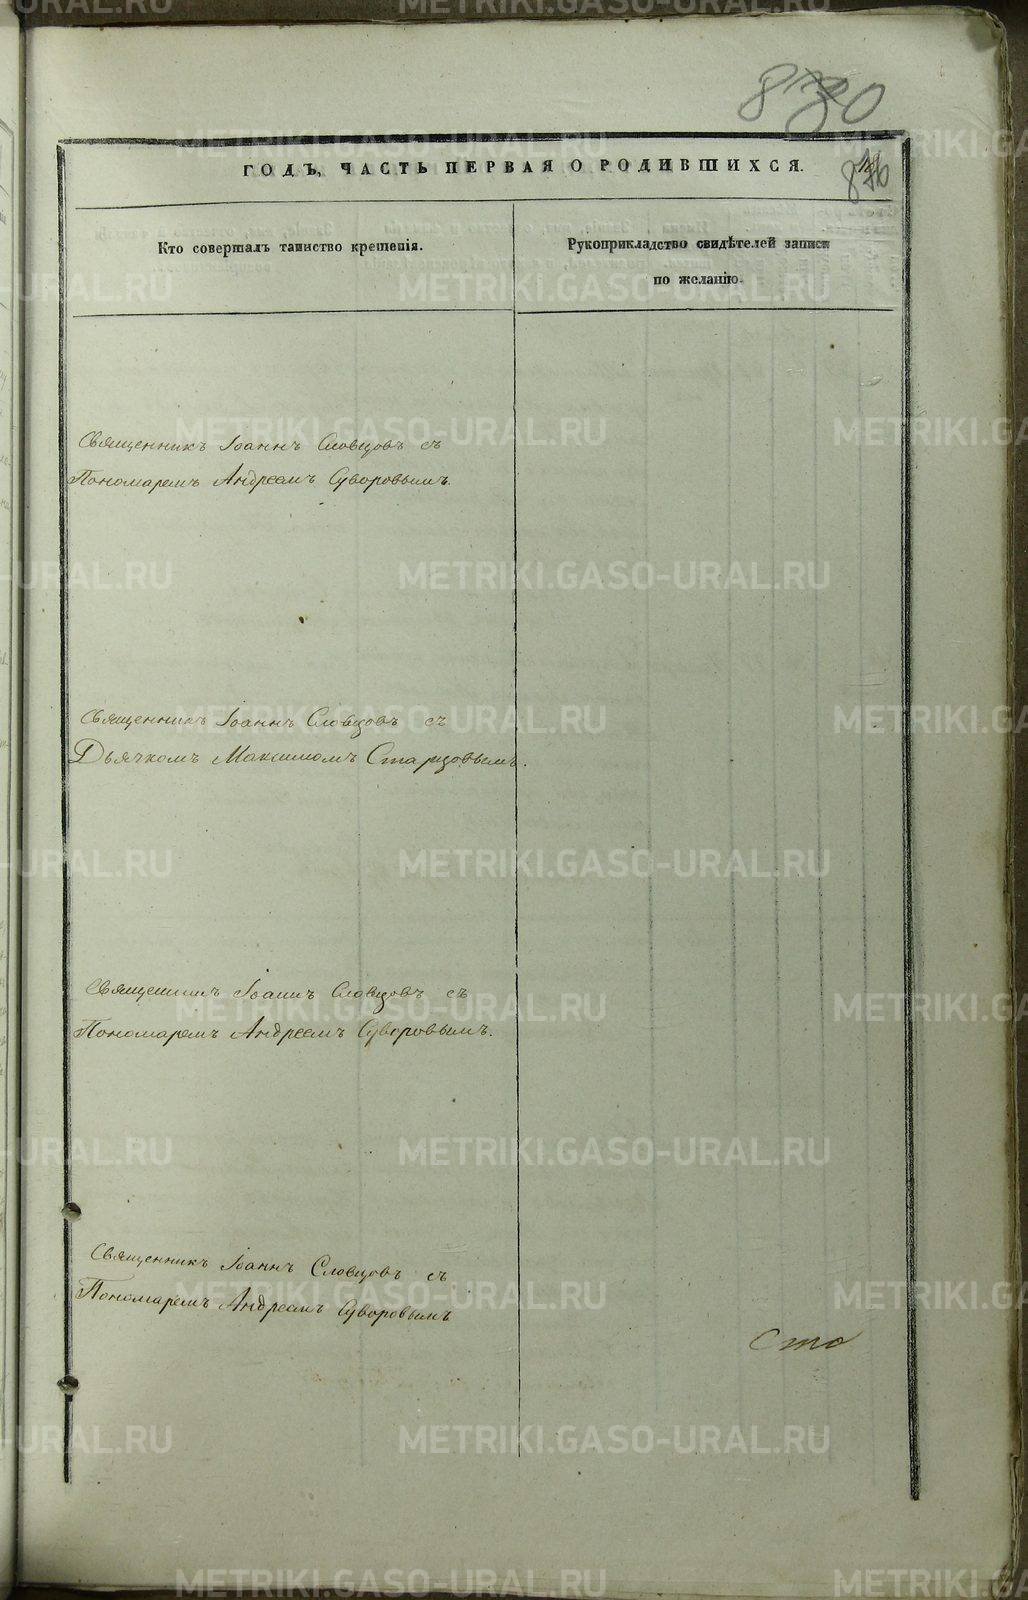 ГОДЪ, ЧАСТЬ ПЕРВАЯ О РОДИВШИХСЯ.
Кто совершалъ таинство крещенія.
Рукоприкладство свидѣтелей записи
по желанію.
Священникъ Іоаннъ Словцовъ съ
Пономаремъ Андреемъ Суворовымъ.
Священникъ Іоаннъ Словцовъ съ
Дьячкомъ Максимомъ Старцовымъ.
Священникъ Іоаннъ Словцовъ съ
Пономаремъ Андреемъ Суворовымъ.
Священникъ Іоаннъ Словцовъ съ
Пономаремъ Андреемъ Суворовымъ
Сто
METRIKI.GASO-URAL.RU